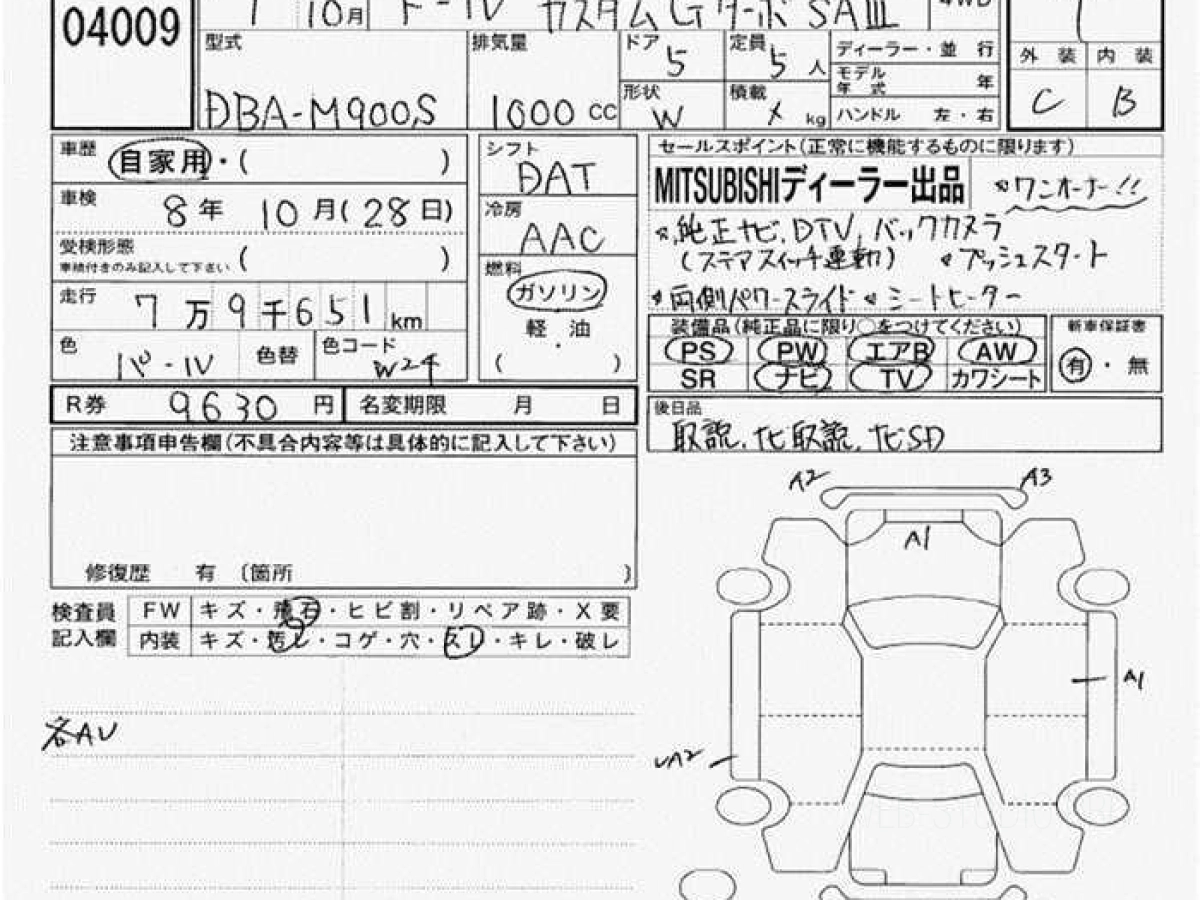 04009
1 10月 トール カスタムGターボSAⅢ 4WD
型式 DBA-M900S
排気量 1000 cc
ドア 5
定員 5 人
形状 W
積載 X kg
ディーラー・並 行
モデル年式 年
ハンドル 左・右
外装 内装
C B
車歴 自家用・( )
車検 8年 10月(28日)
受検形態 ( )
車検付きのみ記入して下さい
走行 7万9千651km
色 パール 色替 色コード W24
シフト DAT
冷房 AAC
燃料 ガソリン
軽・油
( )
セールスポイント(正常に機能するものに限ります)
MITSUBISHIディーラー出品 *ワンオーナー!!
*純正ナビ、DTV、バックカメラ
(ステアスイッチ連動) *プッシュスタート
*両側パワースライド *シートヒーター
装備品(純正品に限り○をつけてください) 新車保証書
PS PW エアB AW 有・無
SR ナビ TV カワシート
R券 9630 円 名変期限 月 日
後日品
取説、ナビ取説、ナビSD
注意事項申告欄(不具合内容等は具体的に記入して下さい)
修復歴 有 〔箇所 〕
検査員記入欄
FW キズ・飛石・ヒビ割・リペア跡・X要
内装 キズ・汚レ・コゲ・穴・スレ・キレ・破レ
各AU
A2 A3
A1
A1
UA2